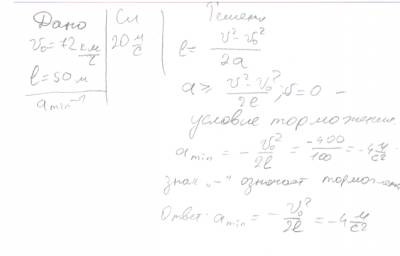 Дано
v₀ = 72 км/с
l = 50 м
a min - ?
Си
20 м/с
Решение
l = (v² - v₀²)/2a
a ≥ (v² - v₀²)/2l ; v = 0 -
условие торможения
a min = - v₀²/2l = -400/100 = -4 м/с²
знак „-" означает торможе
Ответ: a min = - v₀²/2l = -4 м/с²